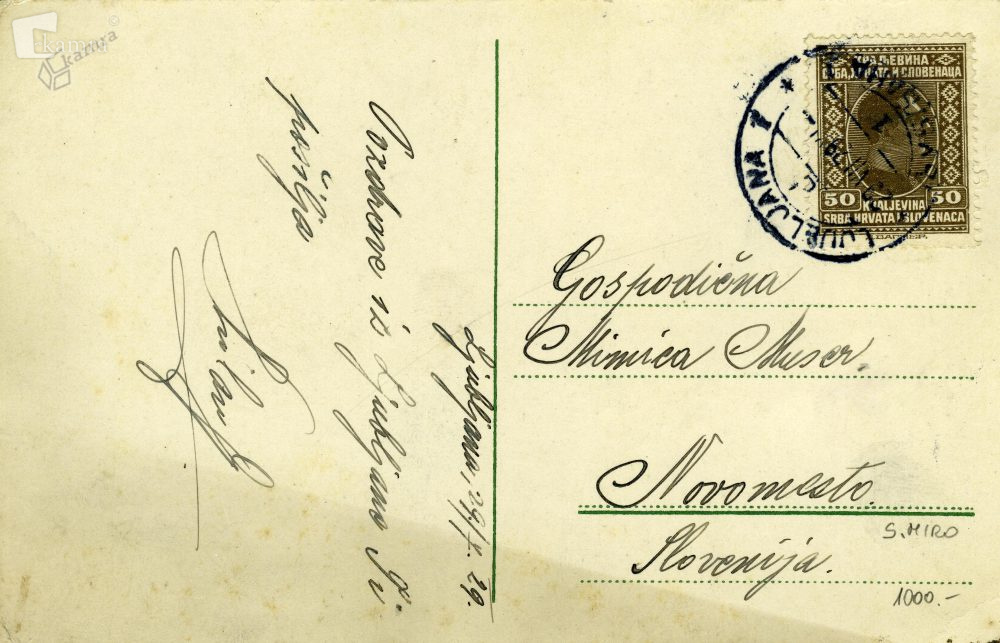 kamra
kamra
©
КРАЉЕВИНА
СРБА, ХРВАТА И СЛОВЕНАЦА
50 50
KRALJEVINA
SRBA HRVATA I SLOVENACA
LJUBLJANA 1
Ljubljana,
Pozdrave iz Ljubljane
pošilja
Gospodična
Mimica Muser.
Novomesto.
Slovenija.
S. MIRO
1000.-